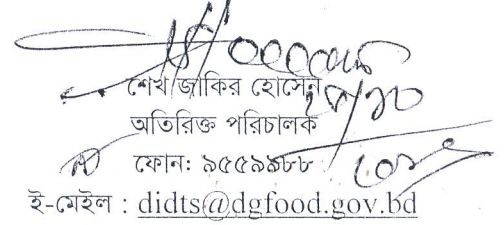 শেখ জাকির হোসেন
অতিরিক্ত পরিচালক
ফোন: ৯৫৫৯৯৮৮
ই-মেইল : didts@dgfood.gov.bd